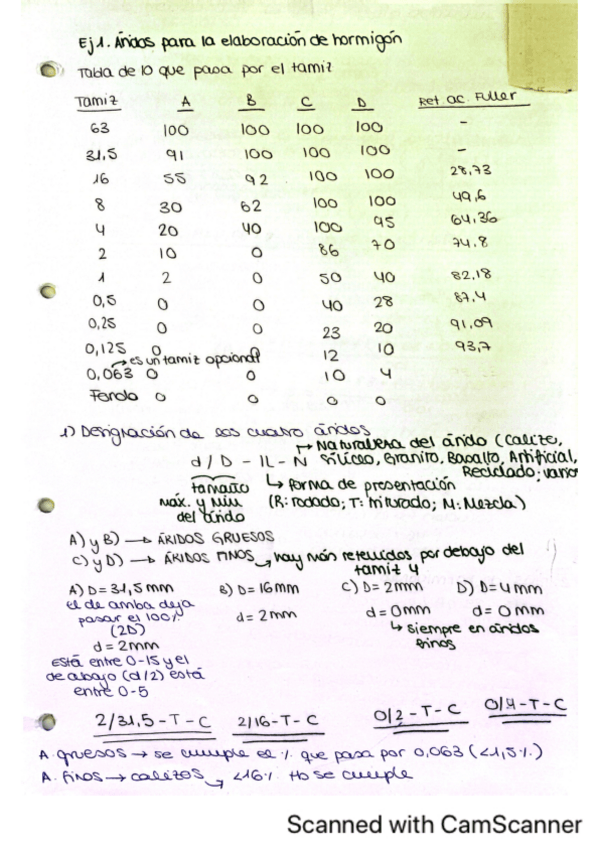 Ej 1. Áridos para la elaboración de hormigón
Tabla de lo que pasa por el tamiz
Tamiz A B C D Ret ac. Fuller
63 100 100 100 100 -
31,5 91 100 100 100 -
16 55 92 100 100 28,73
8 30 62 100 100 49,6
4 20 40 100 95 64,36
2 10 0 86 70 74,8
1 2 0 50 40 82,18
0,5 0 0 40 28 87,4
0,25 0 0 23 20 91,09
0,125 0 0 12 10 93,7
→ es un tamiz opcional
0,063 0 0 10 4
Fondo 0 0 0 0
1) Designación de los cuatro áridos
→ Naturaleza del árido (Calizo,
d / D - IL - N Silíceo, Granito, Basalto, Artificial,
Reciclado; varios
tamaño
máx. y mín
del árido
↳ forma de presentación
(R: rodado; T: triturado; M: Mezcla)
A) y B) → ÁRIDOS GRUESOS
C) y D) → ÁRIDOS FINOS → hay más retenidos por debajo del
tamiz 4
A) D = 31,5 mm B) D = 16 mm C) D = 2 mm D) D = 4 mm
el de arriba deja
pasar el 100%
(2D)
d = 2 mm d = 2 mm d = 0 mm d = 0 mm
↳ siempre en áridos
finos
Está entre 0-15 y el
de abajo (d/2) está
entre 0-5
2/31,5 - T - C 2/16 - T - C 0/2 - T - C 0/4 - T - C
A. gruesos → se cumple el % que pasa por 0,063 (<1,5%)
A. finos → calizos → <16% No se cumple
Scanned with CamScanner